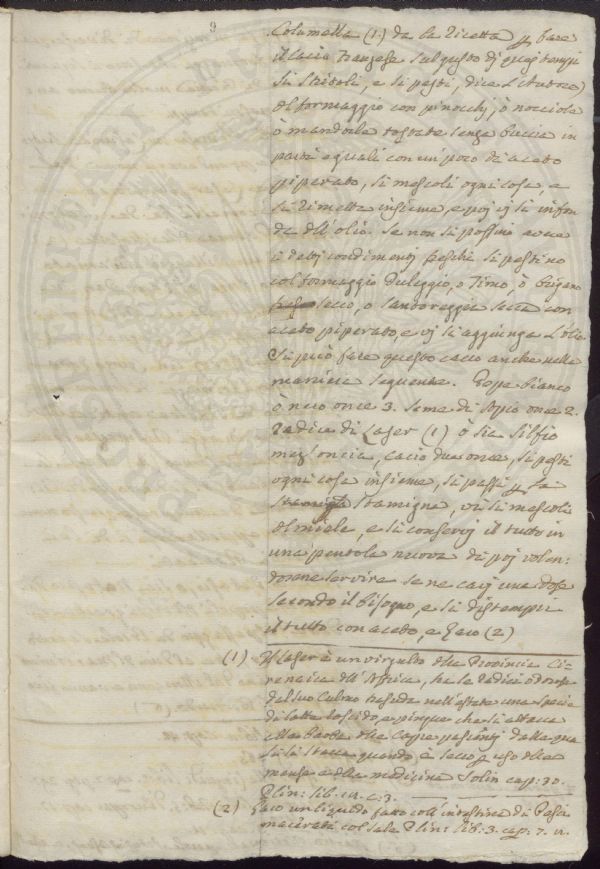 9
Columella (1) da la ricetta p fare
il Cacio Franzese sul gusto di quei tempi
si stritoli, e si pesti, dice l'Autore
il formaggio con pinocchj, ò nocciole
ò mandorle tostate senza buccia in
parti eguali con un poco di aceto
piperato, si mescoli ogni cosa, e
si rimetta insieme, e poi vi si infon
da dell'olio. Se non si possino avere
i detti condimenti freschi si pestino
col formaggio Puleggio, o Timo, ò Origano
secco, o Santoreggia secca con
aceto piperato, e vi si aggiunga l'olio
Si può fare questo cacio anche nella
maniera seguente. Pepe bianco
ò nero once 3. Seme di Apio once 2.
Radice di Laser (1) ò sia Silfio
mezz'oncia, cacio due once, si pesti
ogni cosa insieme, si passi p la
stamigna, vi si mescoli
del miele, e si conservi il tutto in
una pentola nuova di poi volen-
dosene servire se ne cavi una dose
secondo il bisogno, e si distemperi
il tutto con aceto, e Garo (2)
(1) Il Laser è un virgulto della Provincia Ci-
renaica dell'Affrica, ha la radice odorosa
dal suo Culmo trasuda nell'estate una specie
di latte roscido, e pingue che si attacca
alla barba delle Capre pascenti dalla qua
le si stacca quando è secco p uso della
mensa e della medicina Solin cap: 30.
Plin: lib. 19. c: 3.
(2) Garo un liquido fatto coll'intestina di Pesci
macerate col sale Plin: lib: 3. cap: 7.